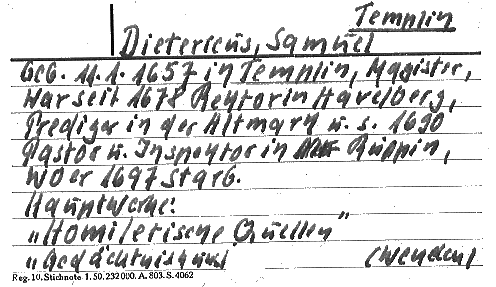 Templin
Dietericus, Samuel
Geb. 11.1.1657 in Templin, Magister,
War seit 1678 Rektor in Havelberg,
Prediger in der Altmark u. s. 1690
Pastor u. Inspektor in Ruppin,
wo er 1697 starb.
Hauptwerke:
„Homiletische Quellen"
„Gedächtniskunst (Wenden)
Reg. 10. Stichnote 1. 50. 232000. A. 803. S. 4062